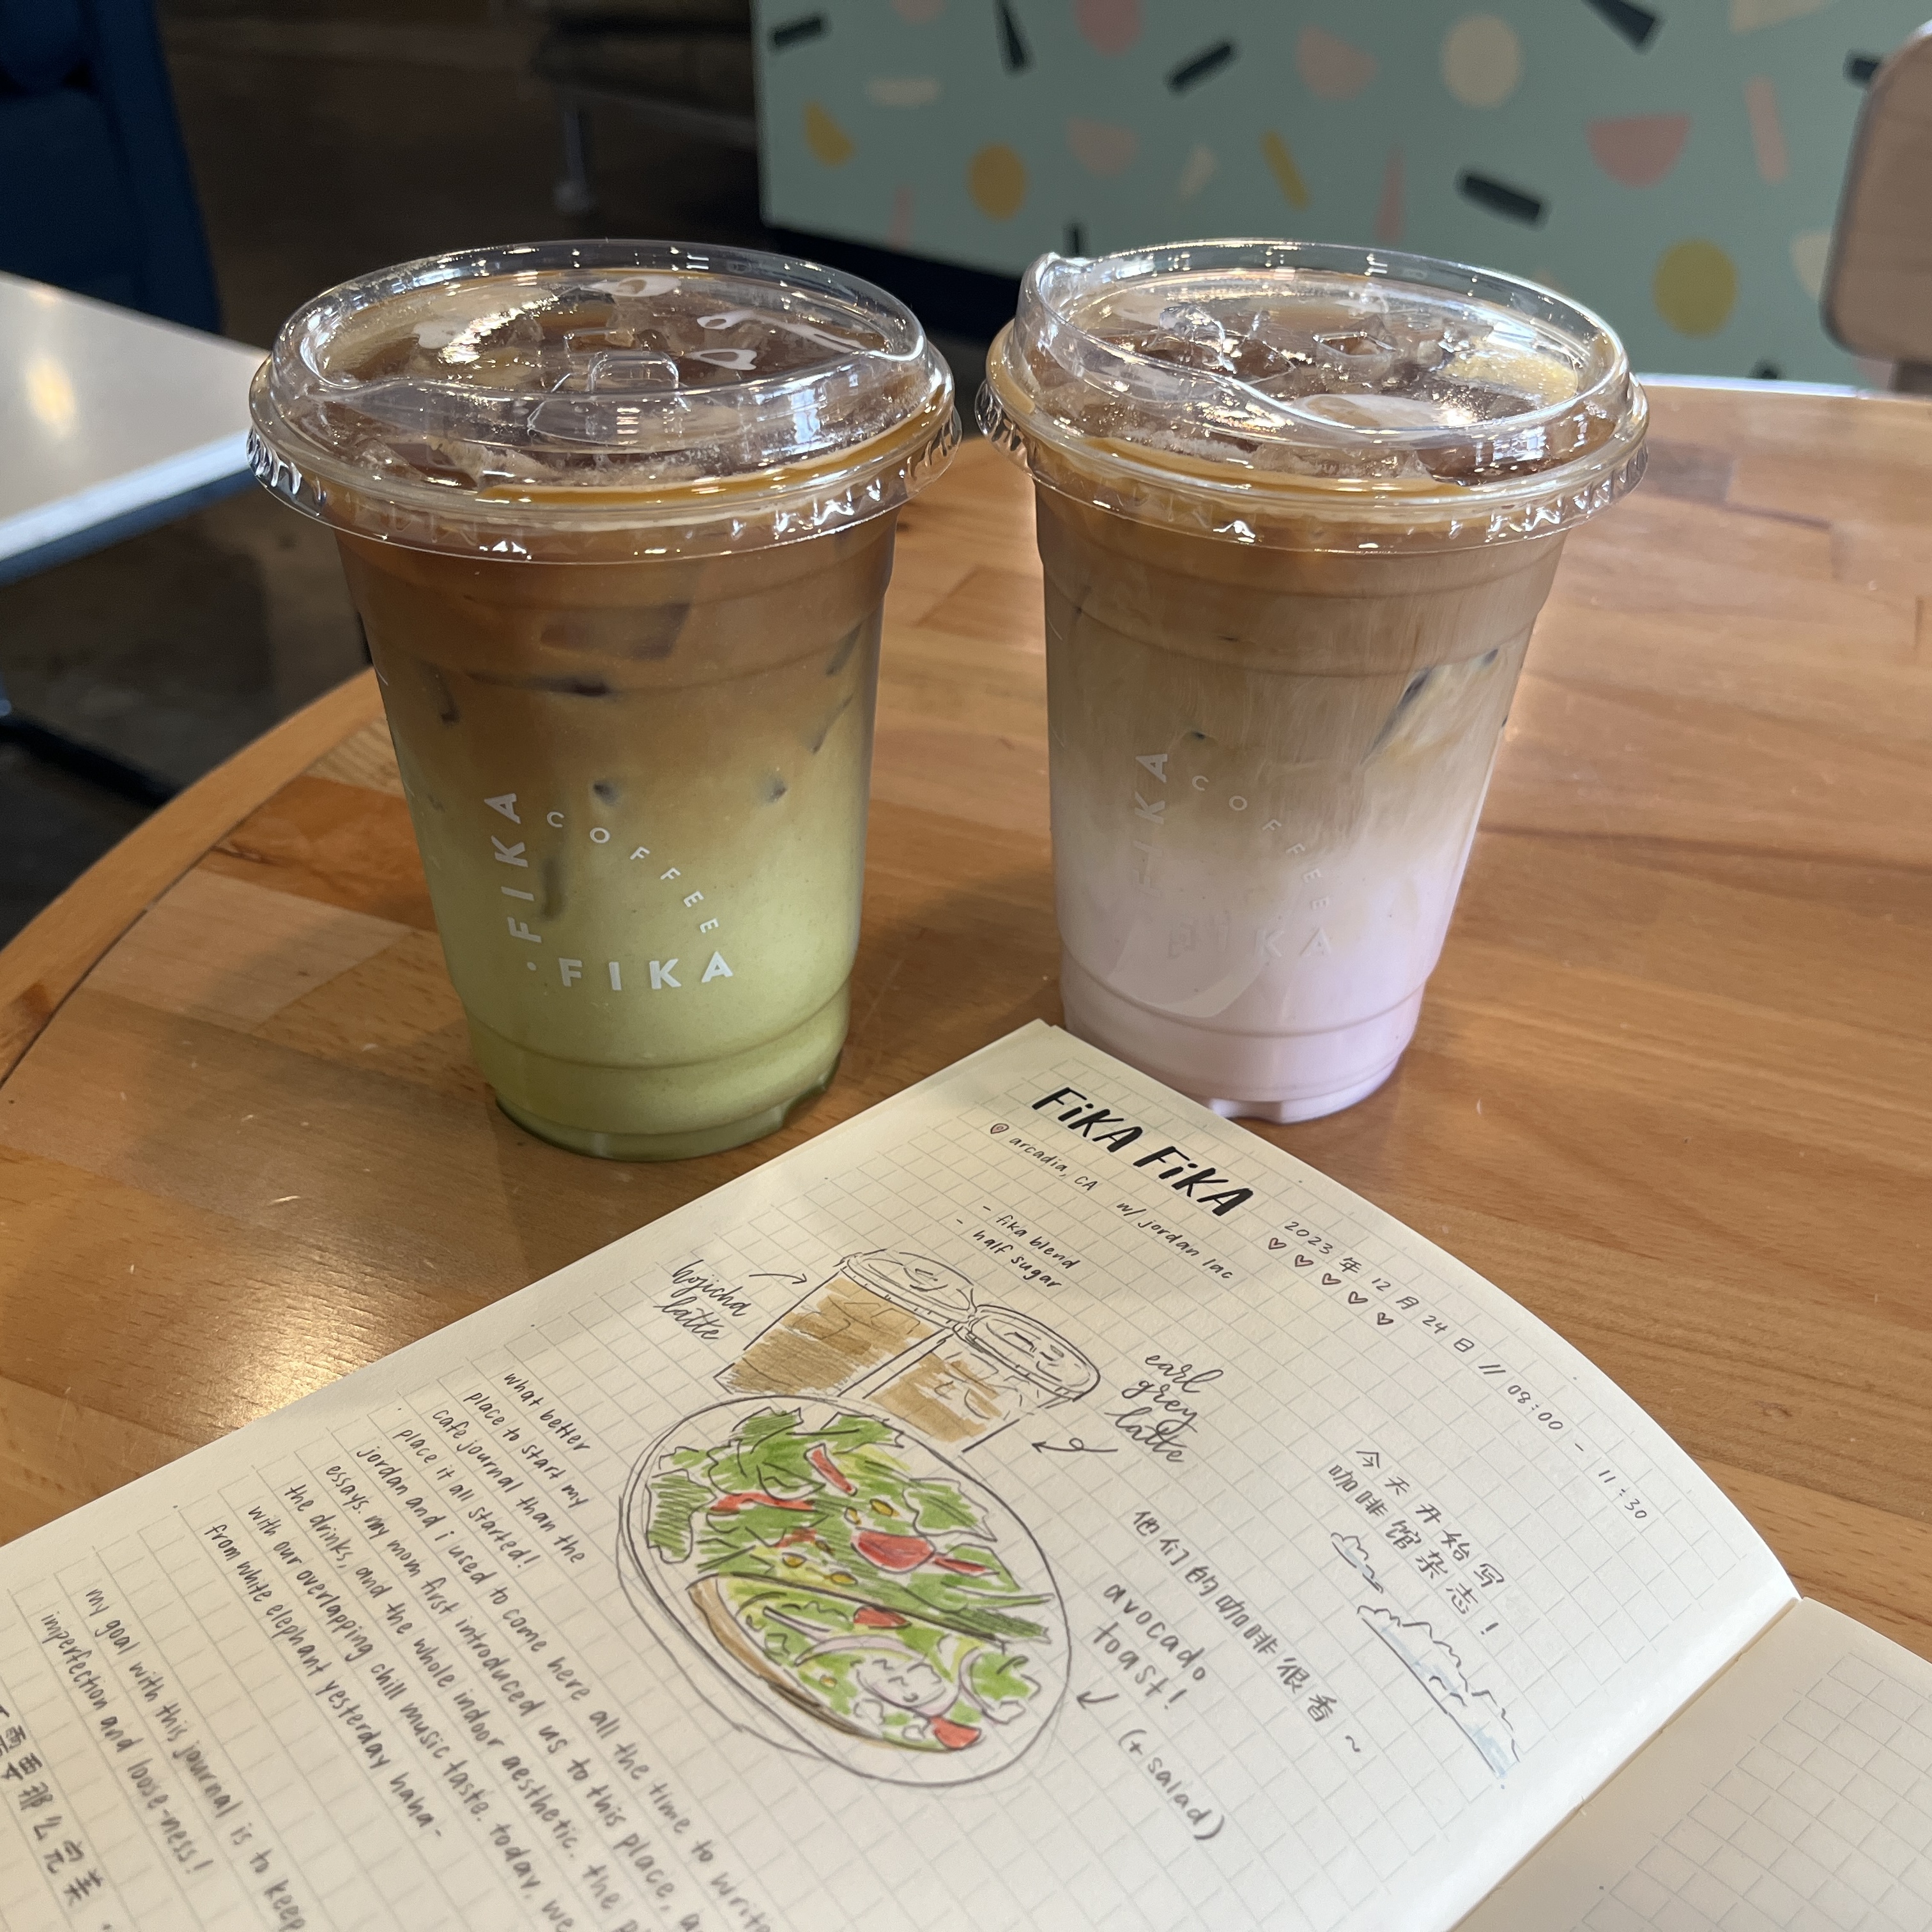 FIKA
COFFEE
FIKA
FIKA
COFFEE
FIKA
FiKA FiKA
arcadia, CA w/ jordan lac
2023 年 12 月 24 日 // 08:00 - 11:30
- fika blend
- half sugar
hojicha
latte
earl
grey
latte
今天开始写
咖啡馆杂志!
他们的咖啡很香~
avocado
toast!
(+ salad)
what better
place to start my
cafe journal than the
place it all started!
jordan and i used to come here all the time to write
essays. my mom first introduced us to this place,
the drinks, and the whole indoor aesthetic. the
with our overlapping chill music taste. today, we
from white elephant yesterday haha-
my goal with this journal is to keep
imperfection and loose-ness!
需要那么完美